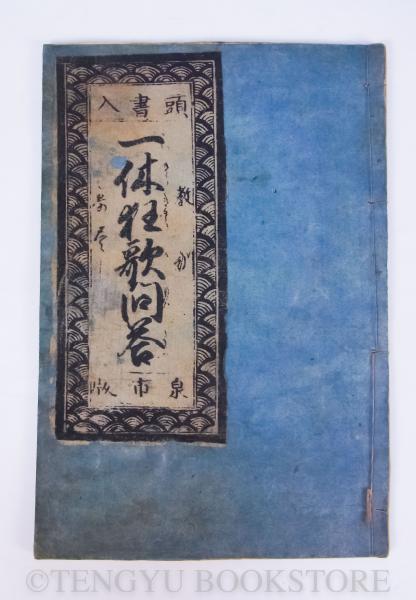 頭書入
一休狂歌問答
泉市版
©TENGYU BOOKSTORE